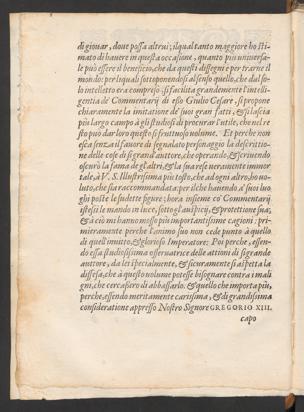 di giouar, doue possa altrui; ilqual tanto maggiore ho sti-
mato di hauere in questa occasione, quanto piu vniuersa-
le può essere il beneficio, che da questi dissegni è per trarne il
mondo: per liquali sottoponendosi al senso quello, che dal so-
lo intelletto era compreso, si facilita grandemente l'intelli-
gentia de' Commentarij di esso Giulio Cesare, si propone
chiaramente la imitatione de' suoi gran fatti, & si lascia
più largo campo à gli studiosi di procurar l'vtile, che nel re
sto può dar loro questo sì fruttuoso volume. Et perche non
esca senza il fauore di segnalato personaggio la descrittio-
ne delle cose di sì grand'auttore, che operando, & scriuendo
oscurò la fama de gl'altri, & la sua rese meramente immor-
tale, à V. S. Illustrissima più tosto, che ad ogni altro, hò vo-
luto, che sia raccommandata: per il che hauendo à' suoi luo-
ghi poste le sudette figure; hora insieme co' Commentarij
istessi le mando in luce, sotto gl'auspicij, & protettione sua,
& à ciò mi hanno mosso più importantissime cagioni; pri-
mieramente perche l'animo suo non cede punto à quello
di quell'inuitto, & glorioso Imperatore: Poi perche, essen-
do essa studiosissima osseruatrice delle attioni di sì grande
auttore, da lei specialmente, & sicuramente si aspetta la
diffesa, che à questo volume potesse bisognar contra i mali
gni, che cercassero di abbassarlo. & quello che importa più,
perche, essendo meritamente carissima, & di grandissima
consideratione appresso Nostro Signore GREGORIO XIII.
capo